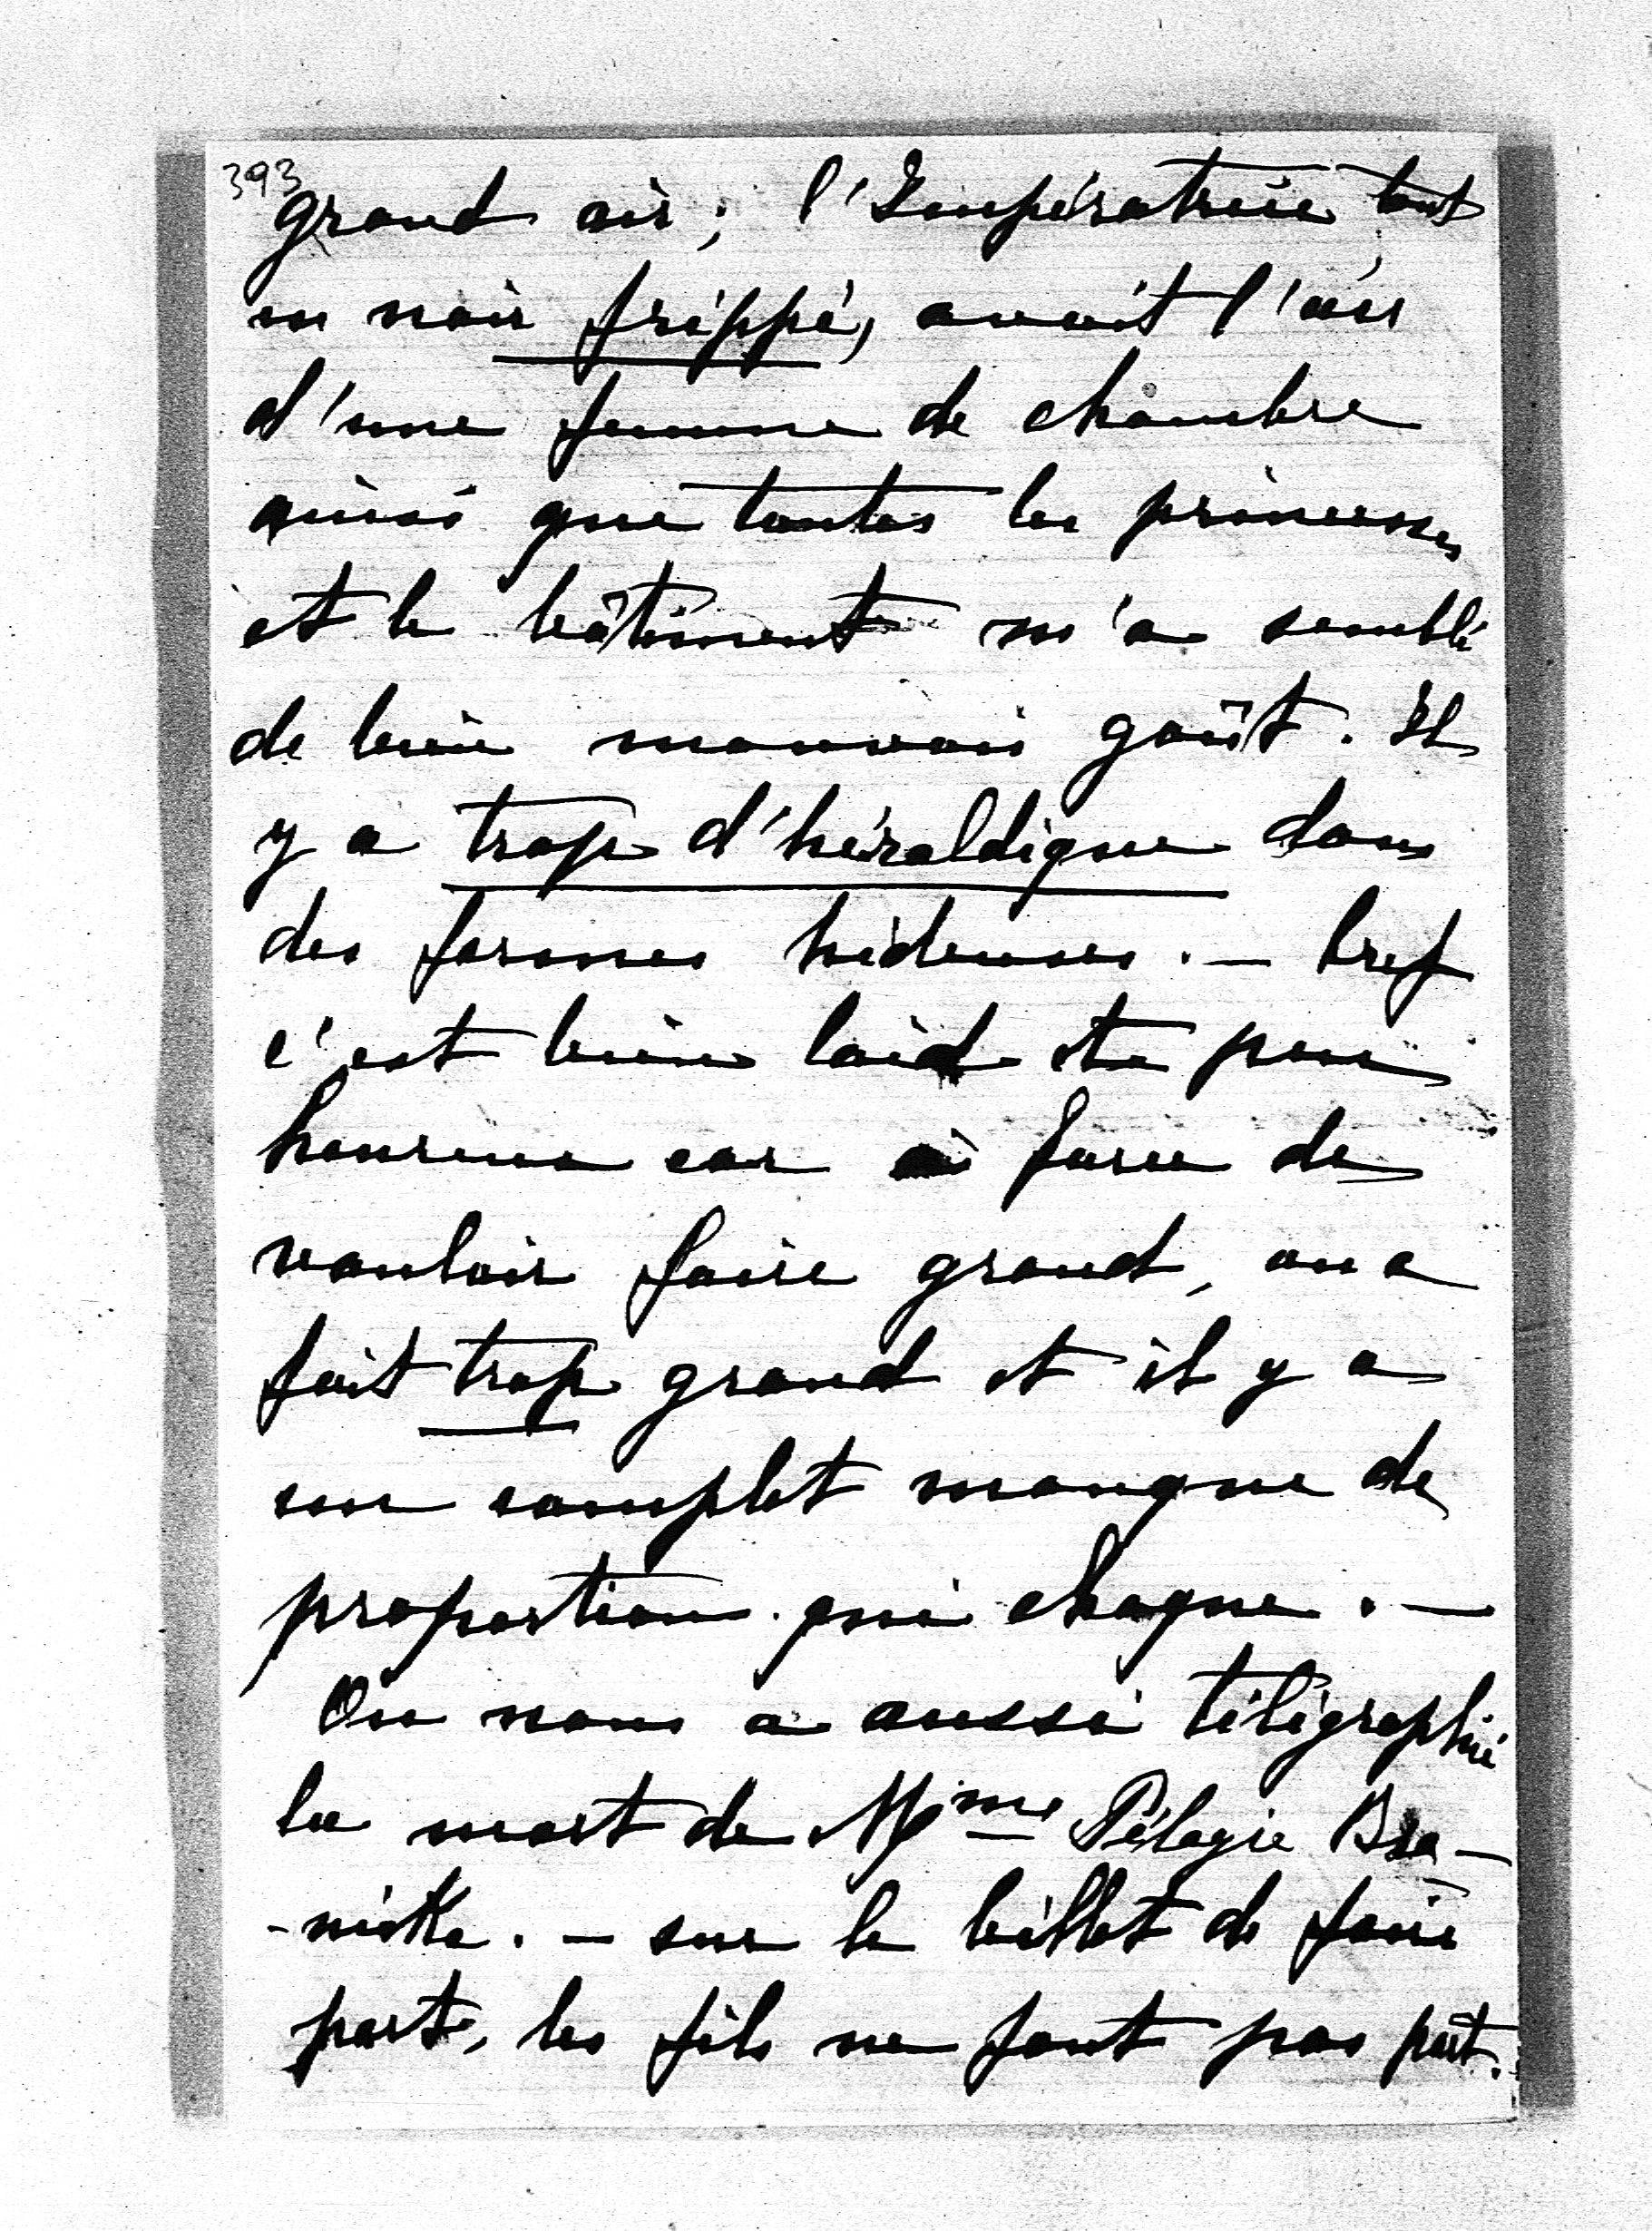 393
grand air; l'Impératrice tout
en noir frippé, avait l'air
d'une femme de chambre
ainsi que toutes les princesses
et le bâtiment m'a semblé
de bien mauvais goût. Il
y a trop d'héraldique dans
des formes hideuses. — bref
c'est bien laid et peu
heureux car à force de
vouloir faire grand, on a
fait trop grand et il y a
un complet manque de
proportion qui choque. —
On nous a aussi télégraphié
la mort de Mme Pélagie Bra-
-nicka. — sur le billet de faire
part, les fils ne font pas part.